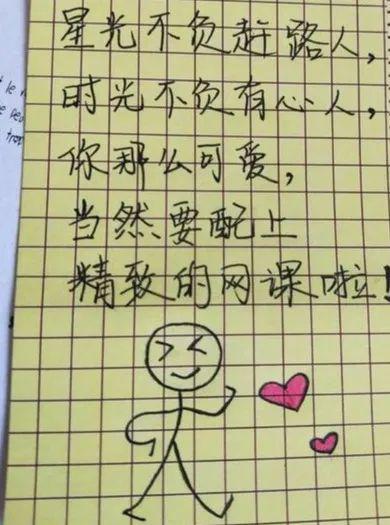 星光不负赶路人，
时光不负有心人，
你那么可爱，
当然要配上
精致的网课啦！